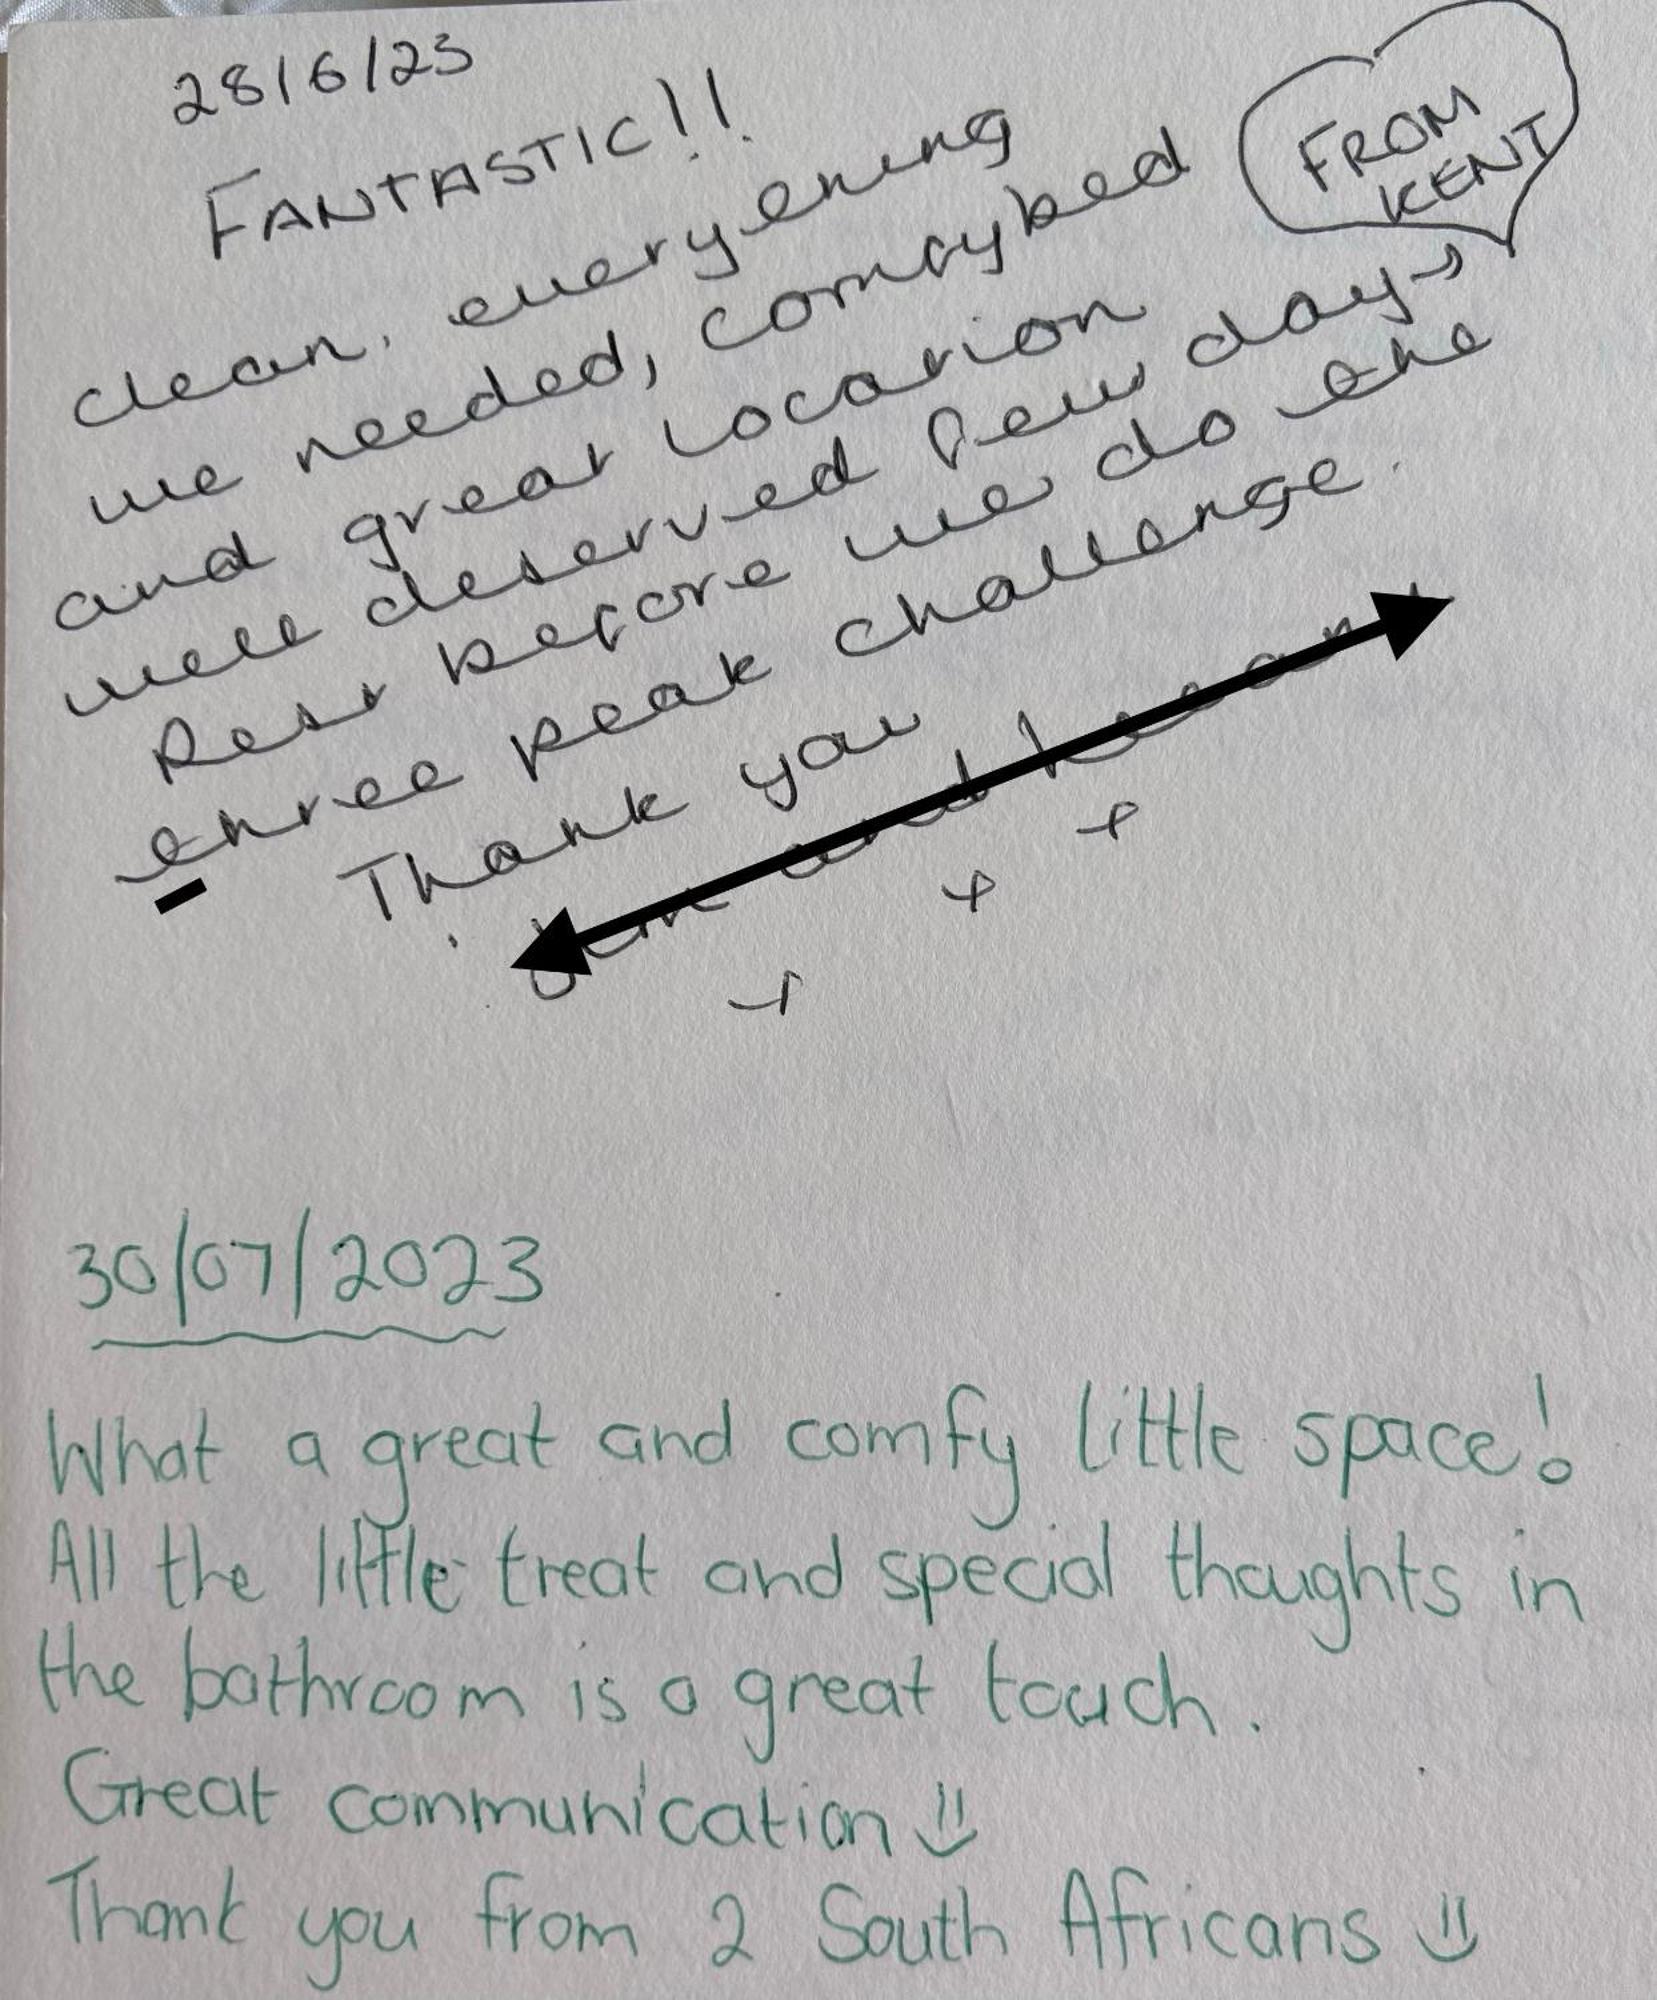 28/6/23
FANTASTIC!!
FROM
KENT
clean, everything
we needed, comfy bed
and great location
well deserved few days
Rest before we do the
three peak challenge.
Thank you
and
x x x
30/07/2023
What a great and comfy little space!
All the little treat and special thoughts in
the bathroom is a great touch.
Great communication
Thank you from 2 South Africans